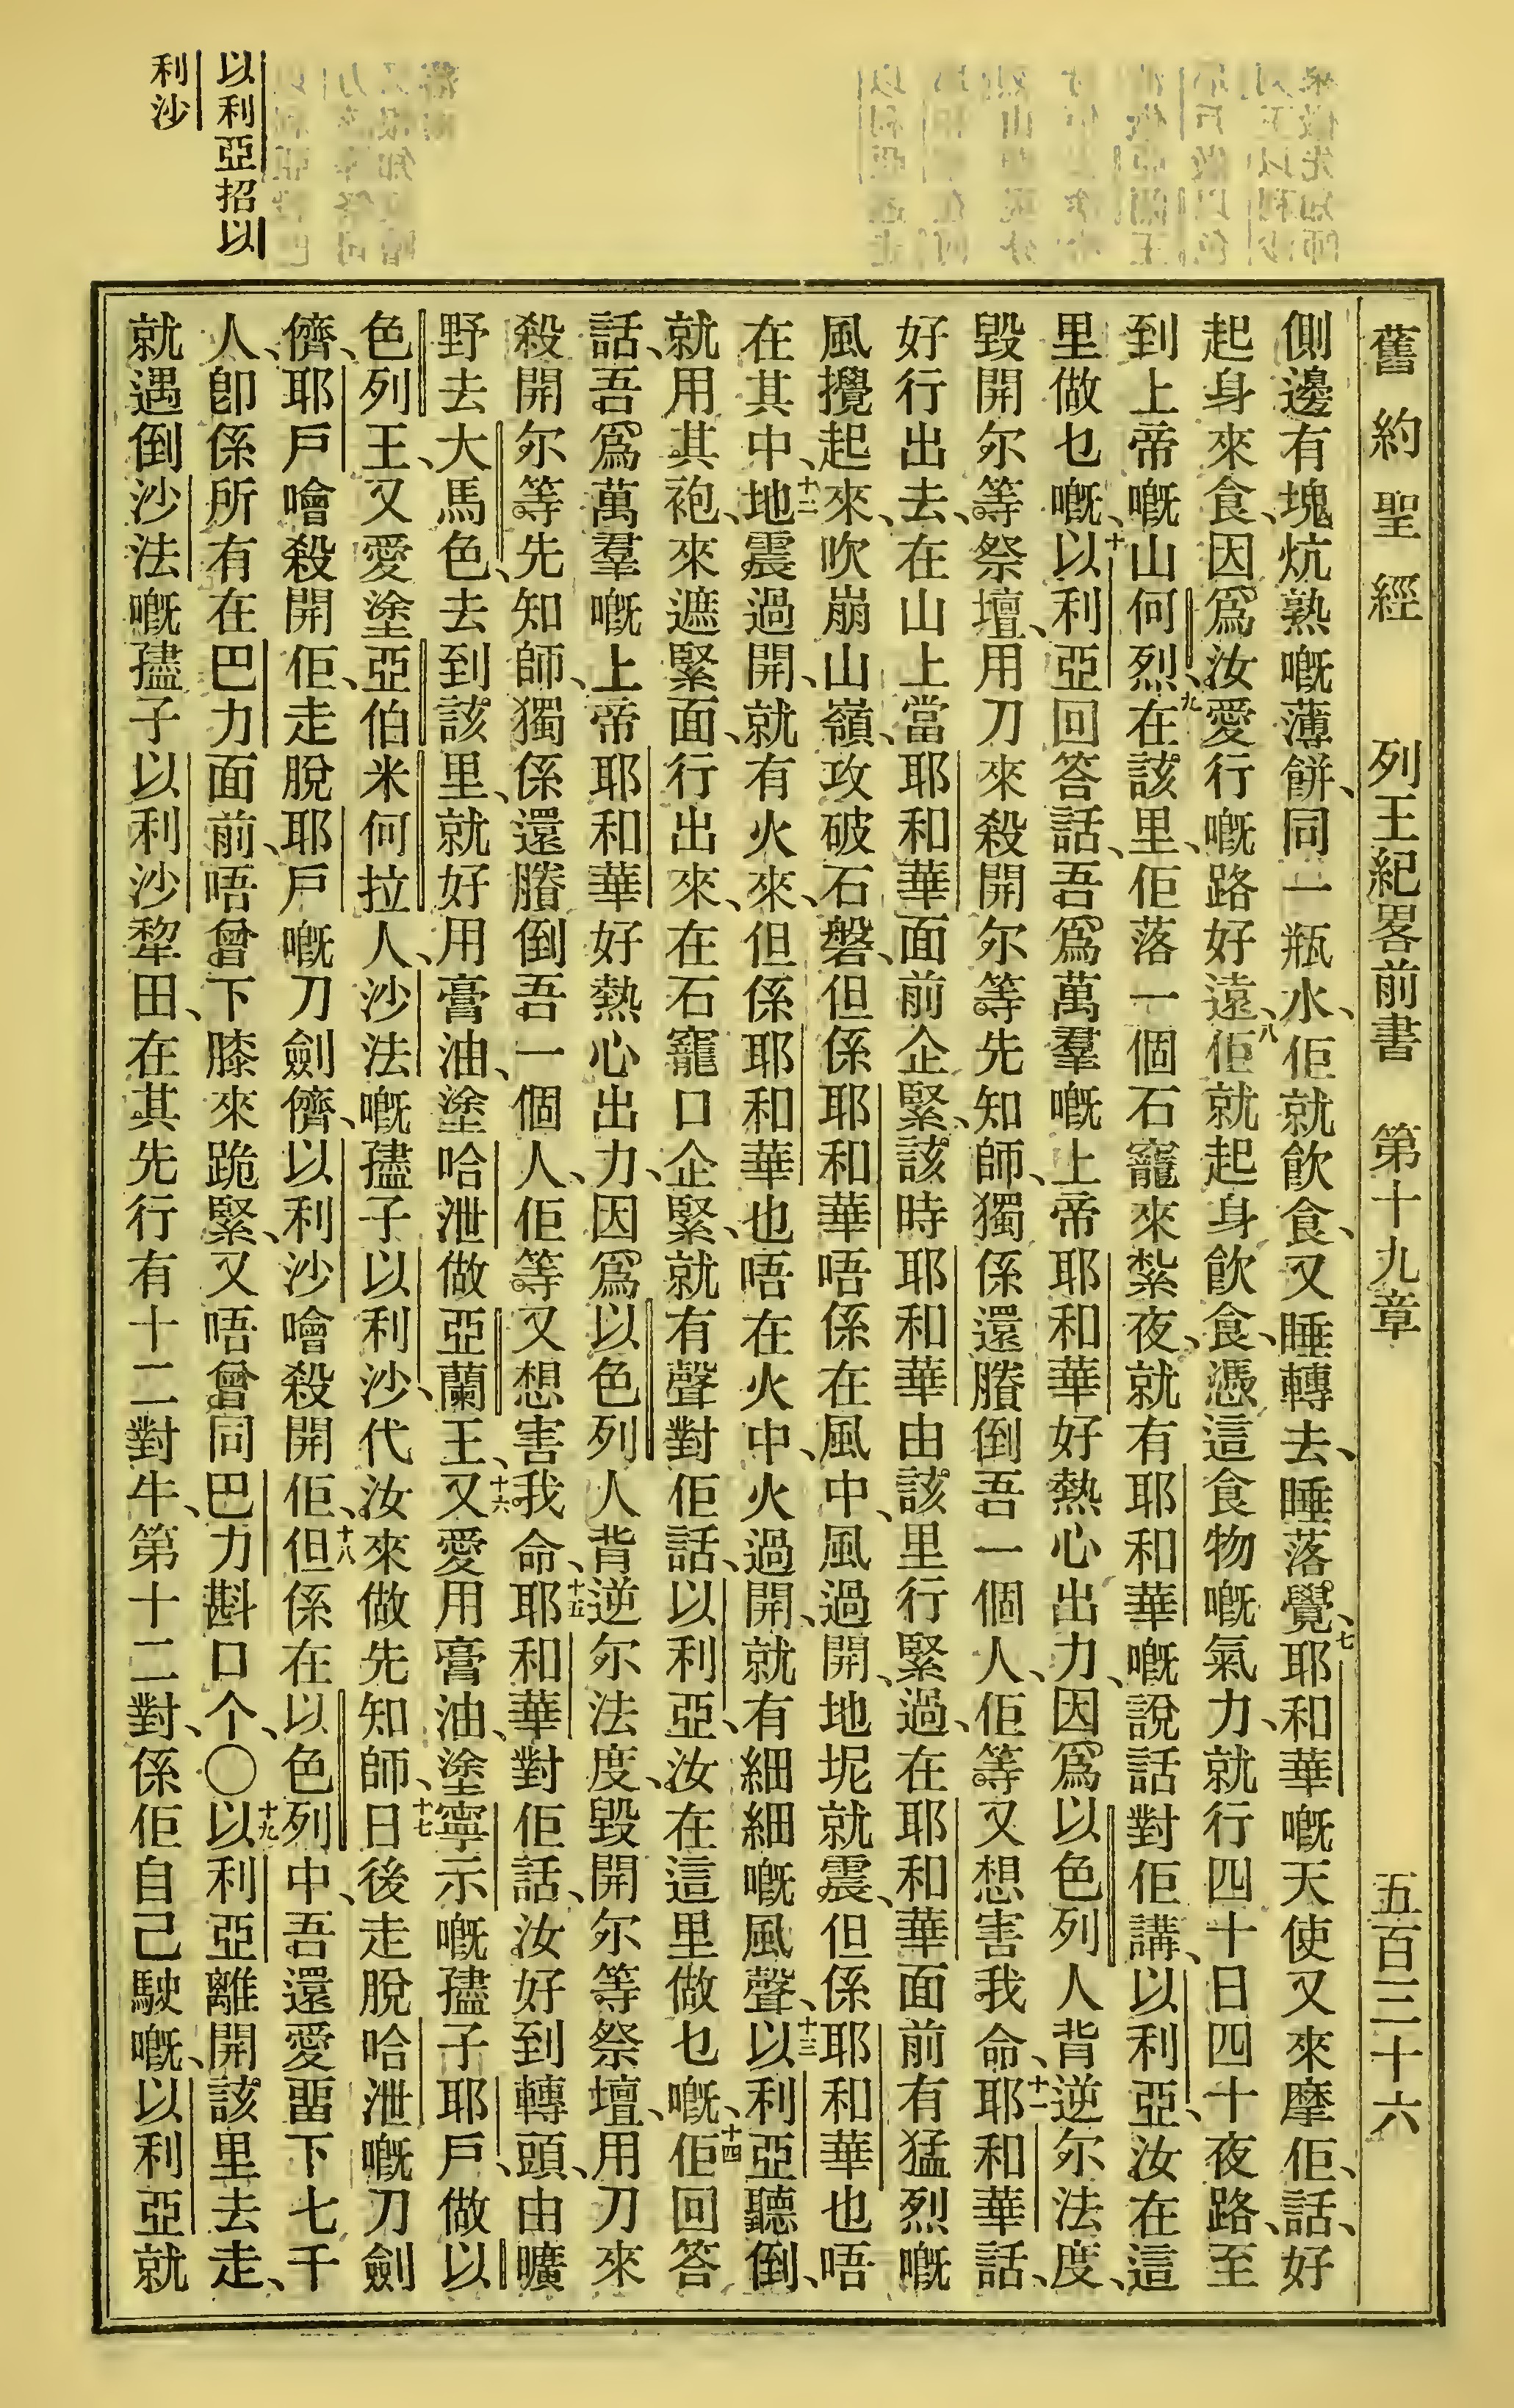 舊約聖經 列王紀畧前書 第十九章 五百三十六
側邊有塊炕熟嘅薄餅、同一瓶水、佢就飲食、又睡轉去、睡落覺、七耶和華嘅天使又來摩佢、話、好
起身來食、因爲汝愛行嘅路好遠、八佢就起身飲食、憑這食物嘅氣力、就行四十日四十夜路、至
到上帝嘅山何烈、九在該里、佢落一個石竉來紮夜、就有耶和華嘅說話對佢講、以利亞、汝在這
里做乜嘅、十以利亞回答話、吾爲萬羣嘅上帝耶和華好熱心出力、因爲以色列人背逆尔法度、
毀開尔等祭壇、用刀來殺開尔等先知師、獨係還賸倒吾一個人、佢等又想害我命、十一耶和華話、
好行出去、在山上當耶和華面前企緊、該時耶和華由該里行緊過、在耶和華面前有猛烈嘅
風攪起來、吹崩山嶺、攻破石磐、但係耶和華唔係在風中、風過開、地坭就震、但係耶和華也唔
在其中、十二地震過開、就有火來、但係耶和華也唔在火中、火過開、就有細細嘅風聲、十三以利亞聽倒、
就用其袍、來遮緊面、行出來、在石竉口企緊、就有聲對佢話、以利亞、汝在這里做乜嘅、十四佢回答
話、吾爲萬羣嘅上帝耶和華好熱心出力、因爲以色列人背逆尔法度、毀開尔等祭壇、用刀來
殺開尔等先知師、獨係還賸倒吾一個人、佢等又想害我命、十五耶和華對佢話、汝好到轉頭、由曠
野去大馬色、去到該里、就好用膏油、塗哈泄做亞蘭王、十六又愛用膏油、塗寧示嘅孻子耶戶、做以
色列王、又愛塗亞伯米何拉人、沙法嘅孻子以利沙、代汝來做先知師、十七日後走脫哈泄嘅刀劍
儕、耶戶噲殺開佢、走脫耶戶嘅刀劍儕、以利沙噲殺開佢、十八但係在以色列中、吾還愛畱下七千
人、卽係所有在巴力面前、唔曾下膝來跪緊、又唔曾同巴力斟口个、〇十九以利亞離開該里去走、
就遇倒沙法嘅孻子以利沙犂田、在其先行有十二對牛、第十二對、係佢自己駛嘅、以利亞就
以利亞招以
利沙